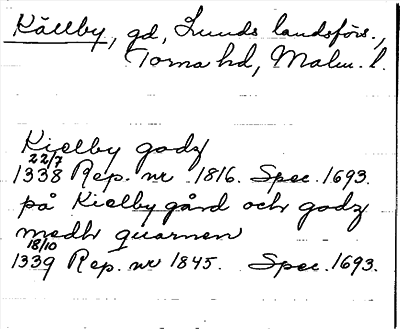 Källby, gd, Lunds landsförs.,
Torna hd, Malm. l.
Kielby godz
22/7
1338 Rep. nr 1816. Spec. 1693.
på Kielby gård och godz
medh quarnen
18/10
1339 Rep. nr 1845. Spec. 1693.